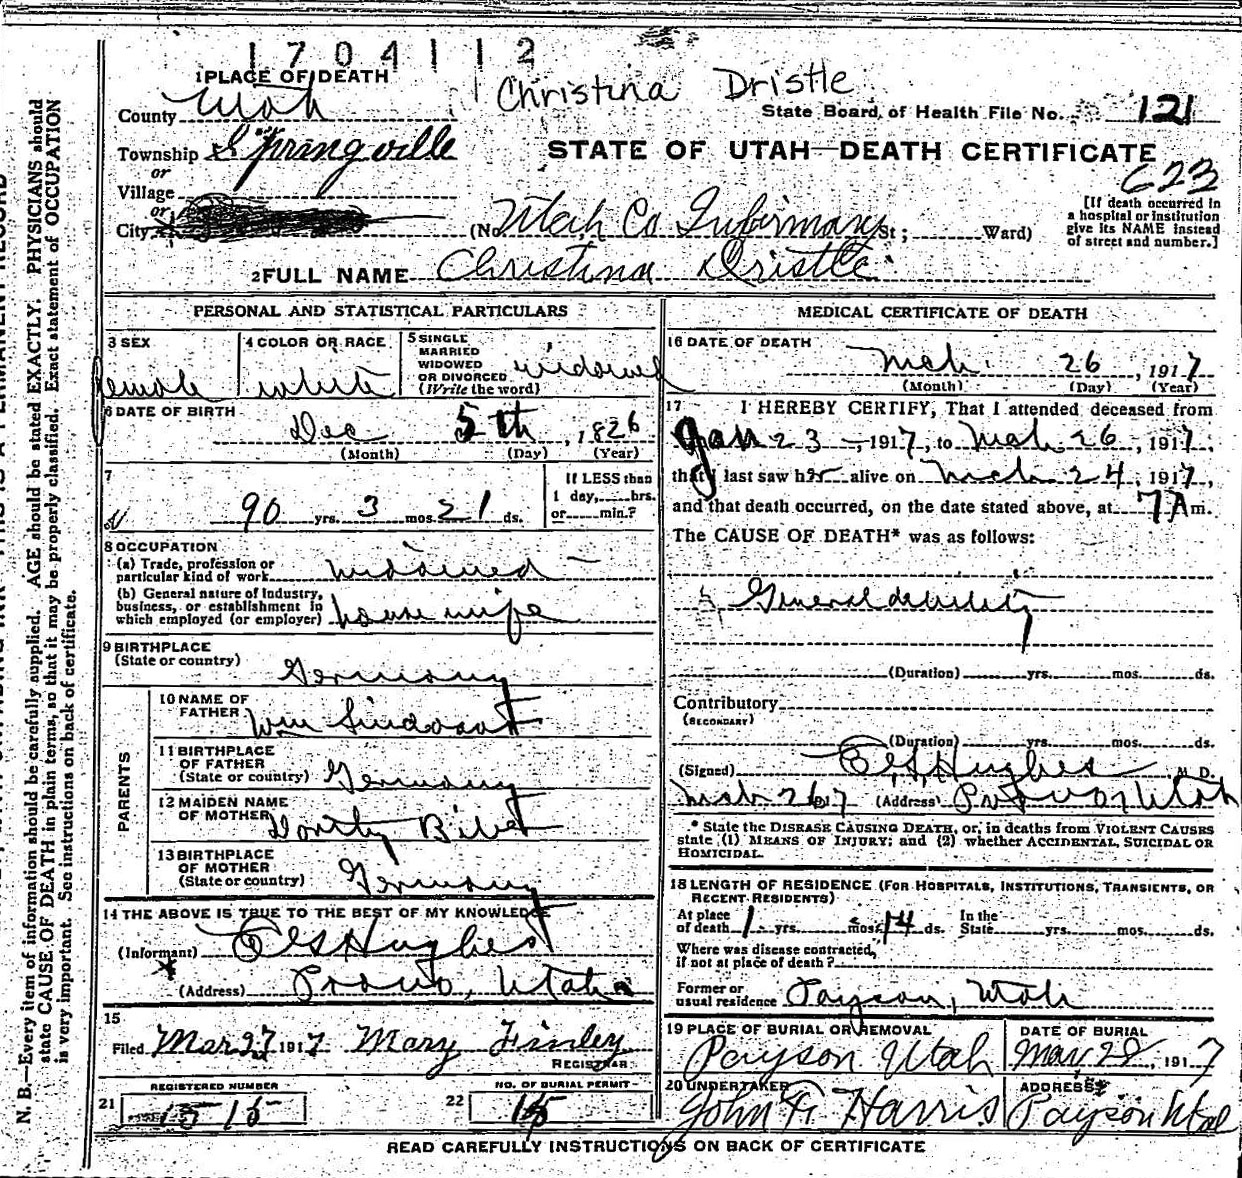 1704112
Christina Dristle
1 PLACE OF DEATH
County Utah
State Board of Health File No. 121
Township Springville
STATE OF UTAH—DEATH CERTIFICATE
or
Village
623
or
City
(No Utah Co Infirmary St; Ward)
[If death occurred in
a hospital or institution
give its NAME instead
of street and number.]
2 FULL NAME Christina Dristle
PERSONAL AND STATISTICAL PARTICULARS
3 SEX
Female
4 COLOR OR RACE
White
5 SINGLE
MARRIED
WIDOWED
OR DIVORCED
(Write the word)
widowed
6 DATE OF BIRTH
Dec 5th, 1826
(Month) (Day) (Year)
7
90 yrs. 3 mos. 21 ds.
If LESS than
1 day, hrs.
or min.?
8 OCCUPATION
(a) Trade, profession or
particular kind of work widowed
(b) General nature of Industry,
business, or establishment in
which employed (or employer) housewife
9 BIRTHPLACE
(State or country)
Germany
PARENTS
10 NAME OF
FATHER
Wm
11 BIRTHPLACE
OF FATHER
(State or country) Germany
12 MAIDEN NAME
OF MOTHER
13 BIRTHPLACE
OF MOTHER
(State or country) Germany
14 THE ABOVE IS TRUE TO THE BEST OF MY KNOWLEDGE
(Informant) Hughes
(Address) Provo, Utah
15
Filed Mar 27 1917 Mary Finley
REGISTRAR
REGISTERED NUMBER
21 1515
NO. OF BURIAL PERMIT
22 15
MEDICAL CERTIFICATE OF DEATH
16 DATE OF DEATH
Mch. 26, 1917
(Month) (Day) (Year)
17
I HEREBY CERTIFY, That I attended deceased from
Jan 23, 1917, to Mch 26, 1917,
that I last saw her alive on Mch 24, 1917,
and that death occurred, on the date stated above, at 7 A m.
The CAUSE OF DEATH* was as follows:
General debility
(Duration) yrs. mos. ds.
Contributory
(SECONDARY)
(Duration) yrs. mos. ds.
(Signed) Hughes M. D.
Mch 26, 1917 (Address) Provo Utah
* State the DISEASE CAUSING DEATH, or, in deaths from VIOLENT CAUSES
state (1) MEANS OF INJURY; and (2) whether ACCIDENTAL, SUICIDAL OR
HOMICIDAL.
18 LENGTH OF RESIDENCE (FOR HOSPITALS, INSTITUTIONS, TRANSIENTS, OR
RECENT RESIDENTS)
At place
of death 1 yrs. mos. 14 ds.
In the
State yrs. mos. ds.
Where was disease contracted,
if not at place of death?
Former or
usual residence Payson, Utah
19 PLACE OF BURIAL OR REMOVAL
Payson Utah
DATE OF BURIAL
Mar 28, 1917
20 UNDERTAKER
John F. Harris
ADDRESS
Payson Utah
READ CAREFULLY INSTRUCTIONS ON BACK OF CERTIFICATE
N. B.—Every item of information should be carefully supplied. AGE should be stated EXACTLY. PHYSICIANS should
state CAUSE OF DEATH in plain terms, so that it may be properly classified. Exact statement of OCCUPATION
is very important. See instructions on back of certificate.